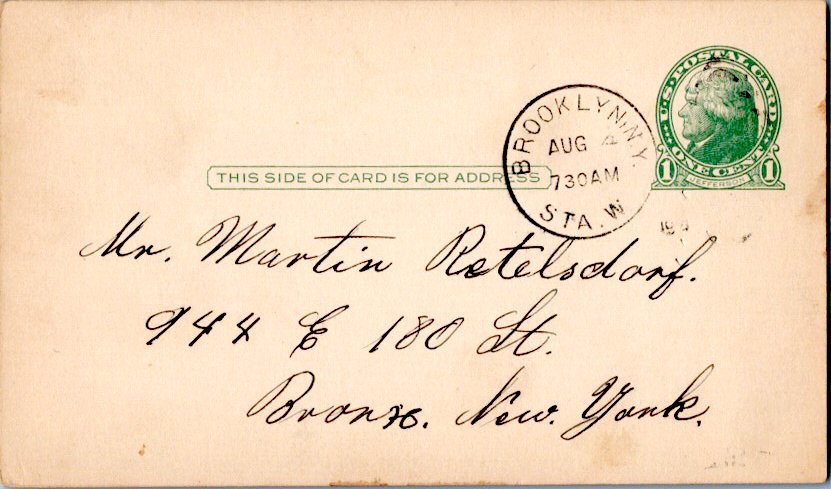 U.S. POSTAL CARD
1 ONE CENT 1
JEFFERSON
BROOKLYN, N.Y.
AUG
730AM
STA. W
THIS SIDE OF CARD IS FOR ADDRESS
Mr. Martin Retelsdorf.
944 E 180 St.
Bronx. New. York.